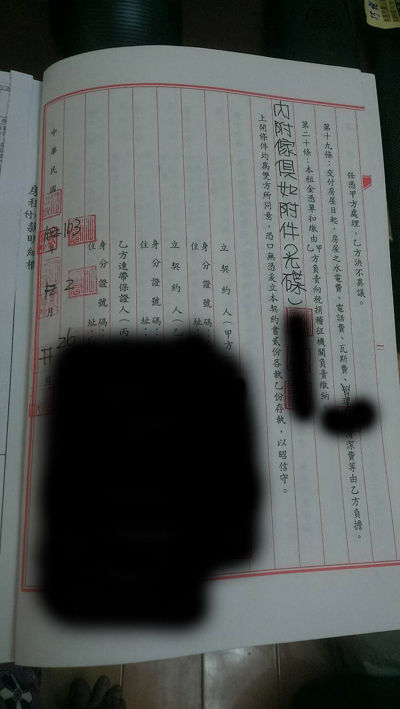 任憑甲方處理，乙方決不異議。
第十九條：交付房屋日起，房屋之水電費、電話費、瓦斯費、潔費等由乙方負擔。
第二十條：本租金憑單扣繳由甲方負責向稅捐稽征機關負責繳納
內附傢俱如附件(光碟)
上開條件均為雙方所同意，恐口無憑爰立本契約書貳份各執乙份存執，以昭信守。
立契約人(甲方
身分證號碼：
住址：
立契約人(乙
身分證號碼：
住址：
乙方連帶保證人(丙
身分證號碼：
住址：
中華民國103年2月26
房租付款明細欄